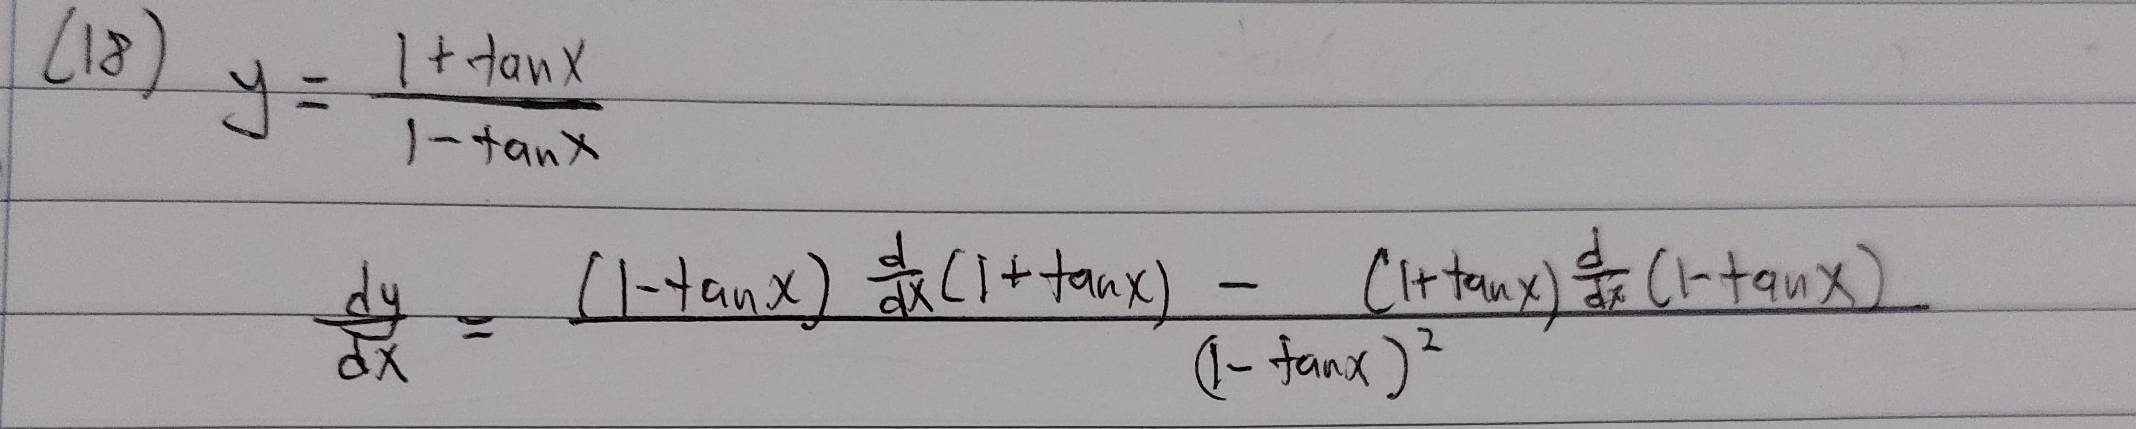 (18) y = (1 + tanx)/(1 - tanx)
dy/dx = ((1-tanx) d/dx (1 + tanx) - (1+tanx) d/dx (1-tanx))/(1 - tanx)²